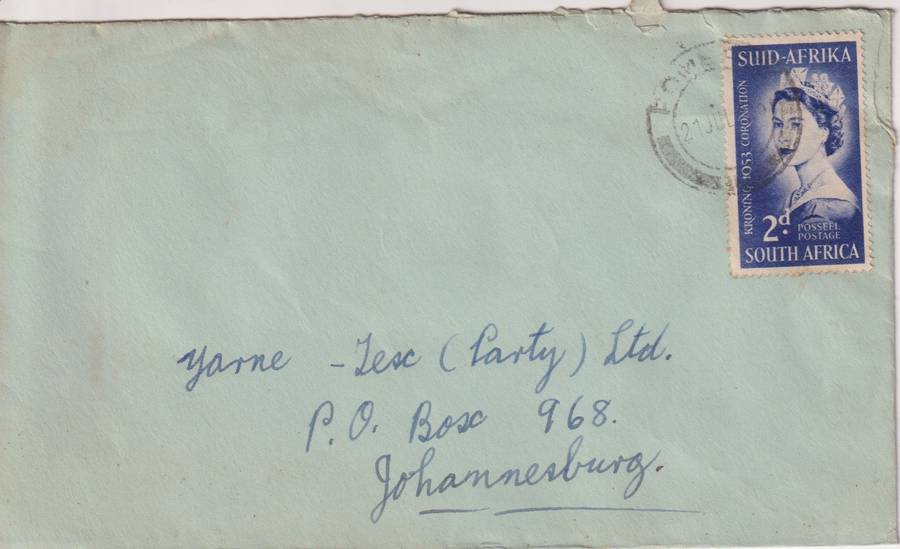 SUID-AFRIKA
KRONING 1953 CORONATION
2d. POSSEEL
POSTAGE
SOUTH AFRICA
21 JU
Yarne - Tesc (Party) Ltd.
P.O. Box 968.
Johannesburg.